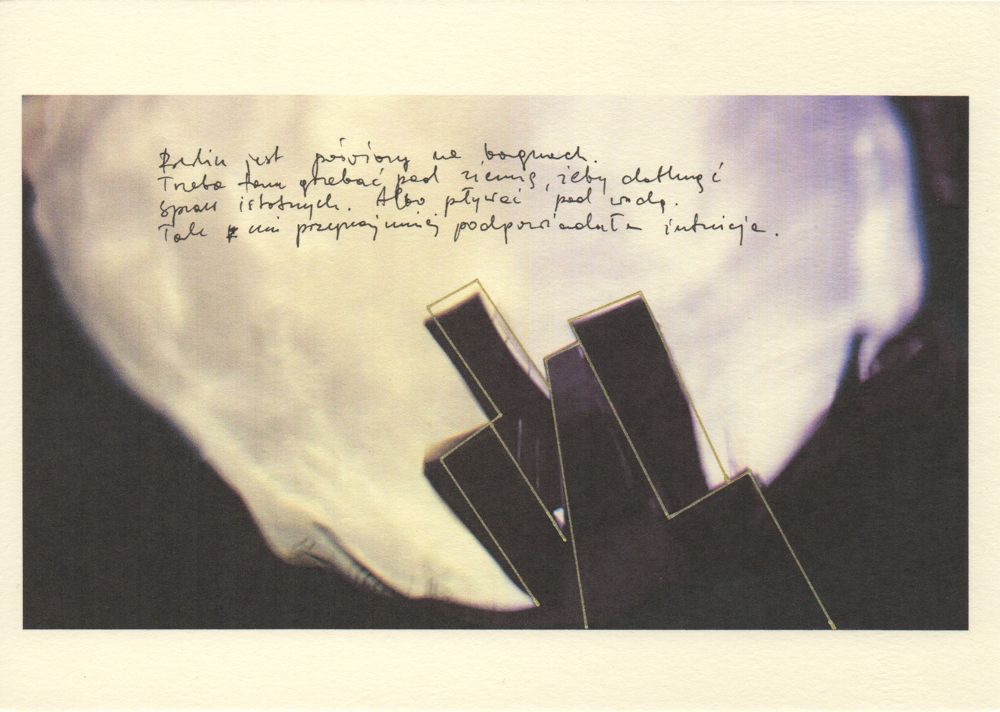 Berlin jest położony na bagnach.
Trzeba tam grzebać pod ziemią, żeby dotknąć
spraw istotnych. Albo pływać pod wodą.
Tak mi przynajmniej podpowiadała intuicja.